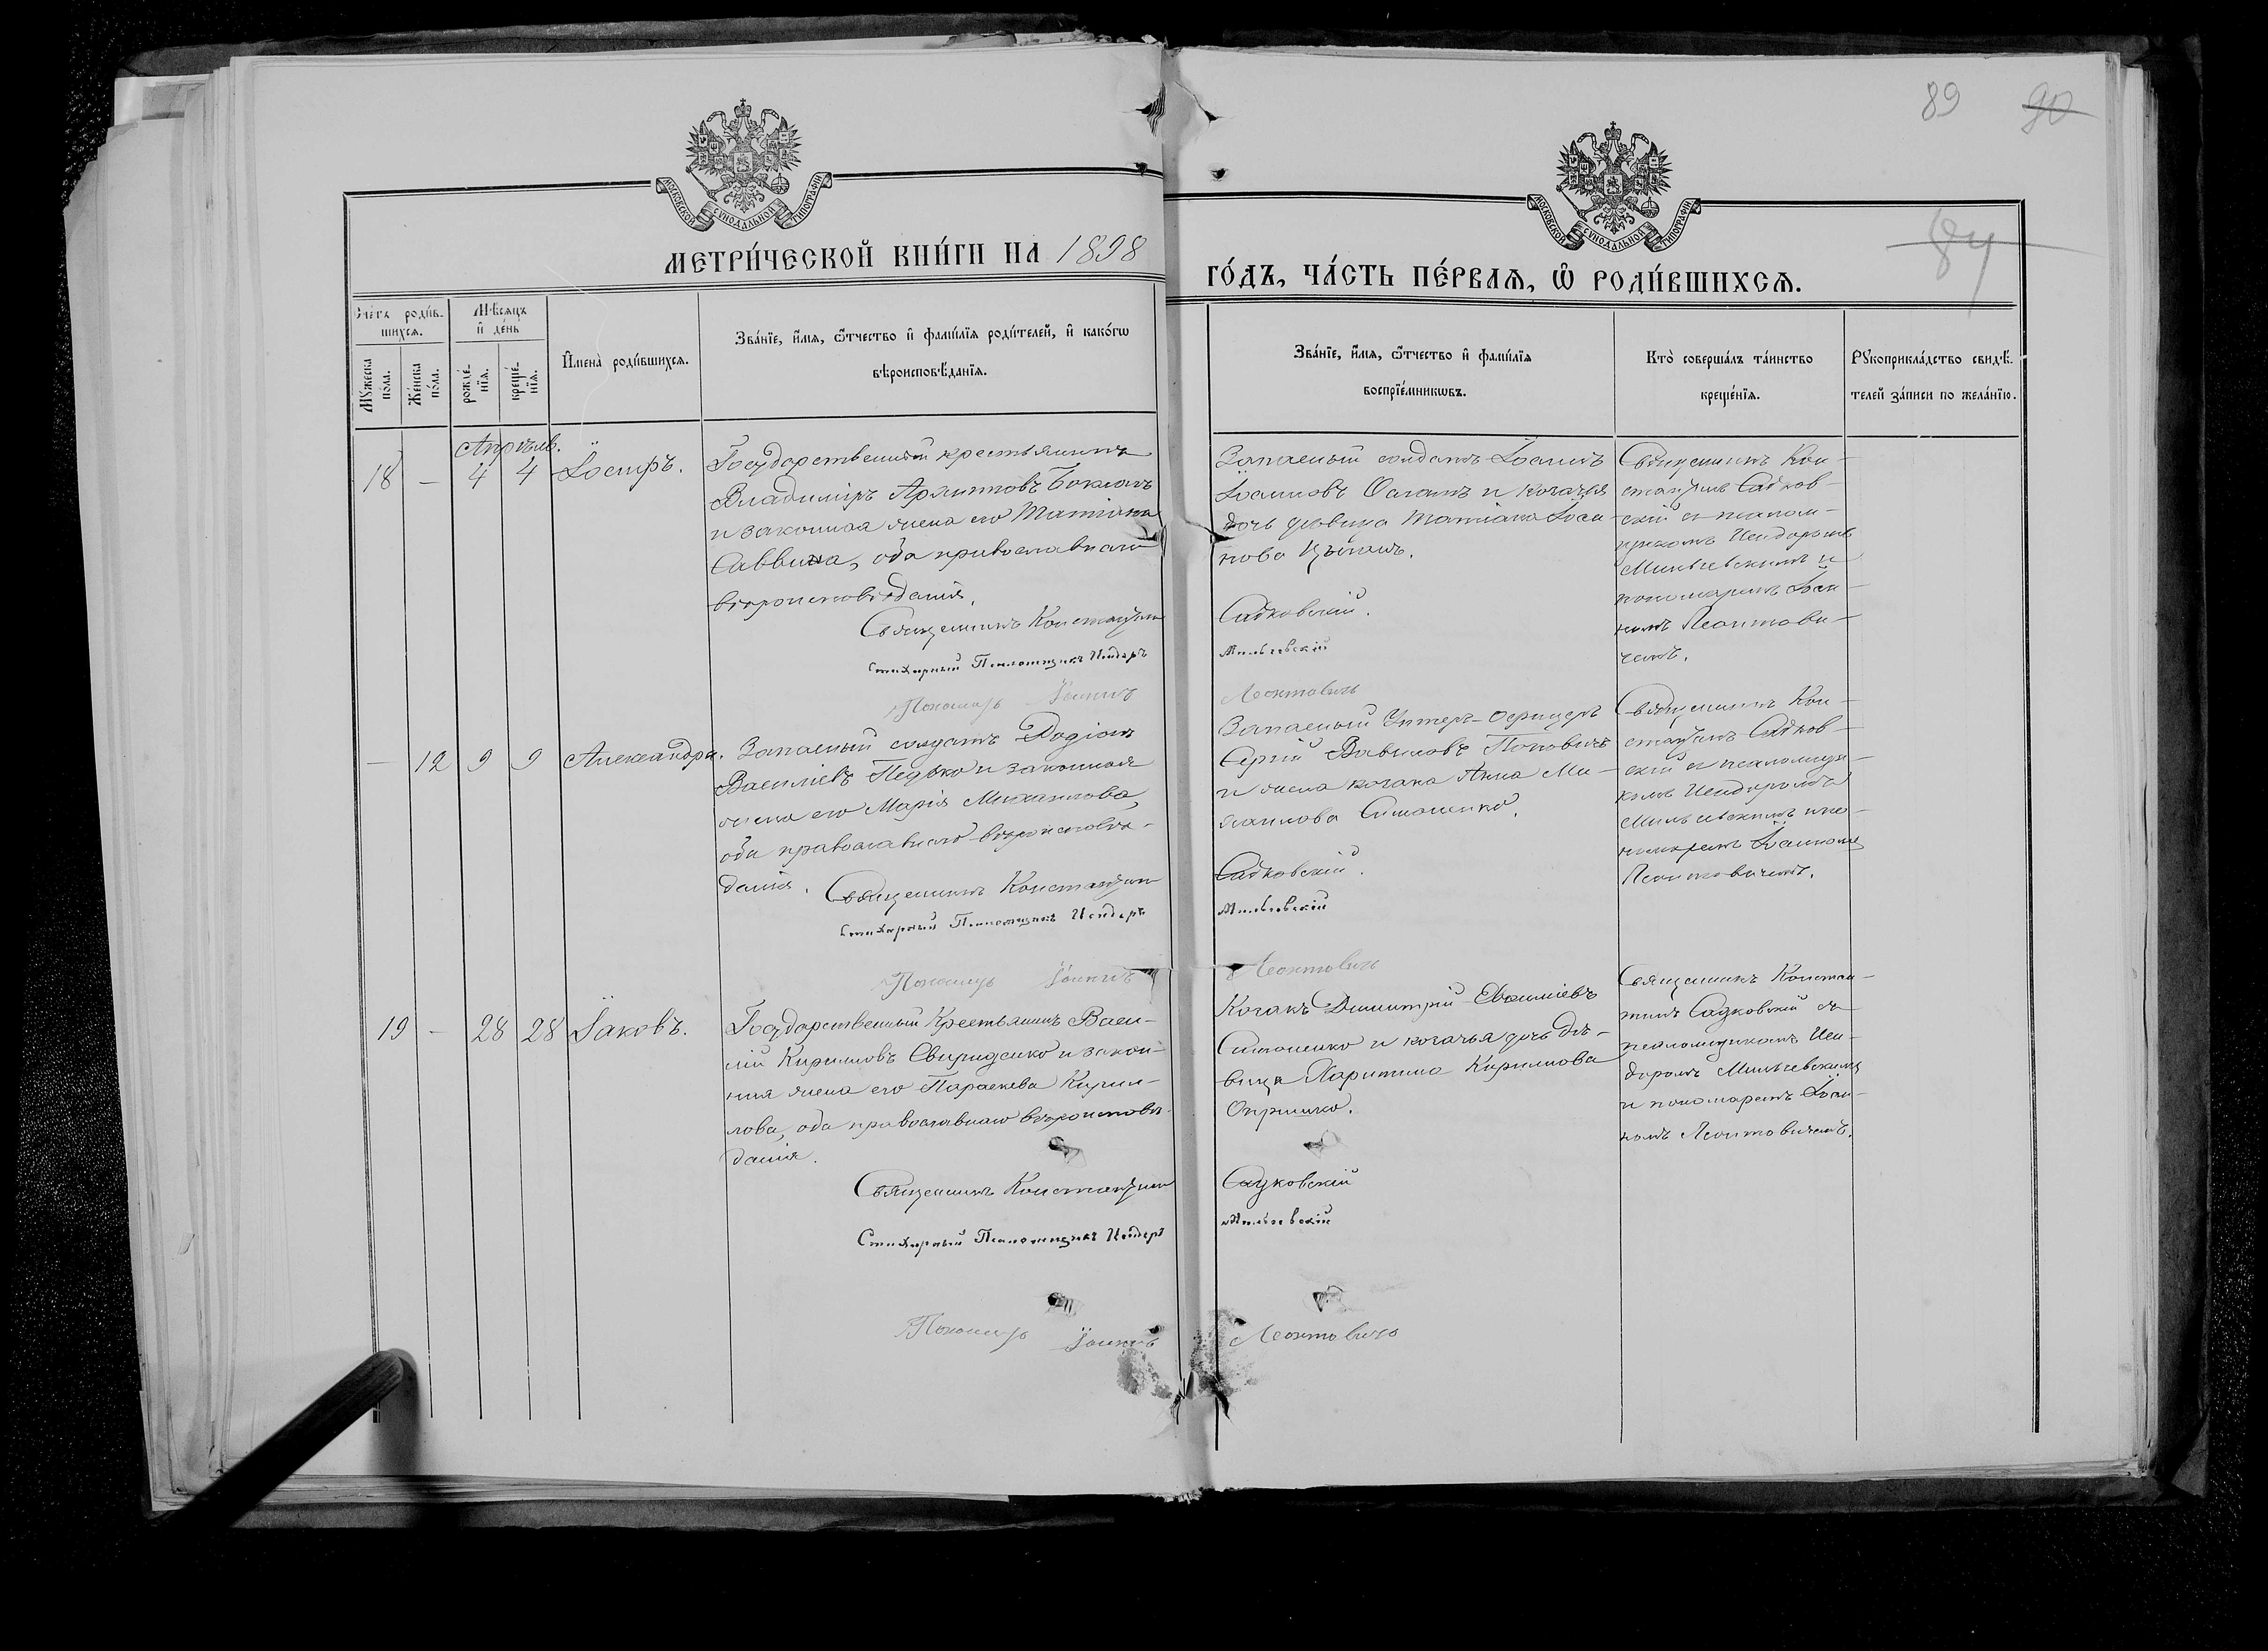 89 90
МОСКОВСКОЙ СѴНОДАЛЬНОЙ ТИПОГРАФІИ
МОСКОВСКОЙ СѴНОДАЛЬНОЙ ТИПОГРАФІИ
84
МЕТРИ́ЧЕСКОЙ КНИ́ГИ НА 1898
ГО́ДЪ, ЧА́СТЬ ПЕ́РВАѦ, Ѽ РОДИ́ВШИХСѦ.
Счетъ роди́в-
шихсѧ.
Мѣсѧцъ
и҆ де́нь
Мꙋжеска
по́ла.
Же́нска
по́ла.
рожде́-
нїѧ.
креще́-
нїѧ.
И҆мена̀ роди́вшихсѧ.
Зва́нїе, и҆́мѧ, ѻ҆́тчество и҆ фами́лїѧ роди́телей, и҆ како́гѡ
вѣроисповѣ́данїѧ.
Зва́нїе, и҆́мѧ, ѻ҆́тчество и҆ фами́лїѧ
воспрїе́мникѡвъ.
Кто̀ соверша́лъ та́инство
креще́нїѧ.
Рꙋкоприкла́дство свидѣ́-
телей за́писи по жела́нїю.
Апрѣль.
18 — 4 4 Іосифъ.
Государственный крестьянинъ
Владиміръ
и законная жена его Татіана
Саввина, оба православнаго
вѣроисповѣданія.
Священникъ Константинъ
Стихарный Псаломщикъ Исидоръ
Пономарь Іоаннъ
Запасный солдатъ Іоаннъ
Іоанновъ и козачья
дочь дѣвица Татіана Іоан-
нова
Садковскій.
Мильчевскій
Леонтовичъ
Священникъ Кон-
стантинъ Садков-
скій съ псалом-
щикомъ Исидоромъ
Мильчевскимъ и
пономаремъ Іоан-
номъ Леонтови-
чемъ.
— 12 9 9 Александра.
Запасный солдатъ Родіонъ
Василіевъ Педько и законная
жена его Марія Михаилова,
оба православнаго вѣроисповѣ-
данія. Священникъ Константинъ
Стихарный Псаломщикъ Исидоръ
Пономарь Іоаннъ
Запасный Унтеръ-офицеръ
Сергій Вавиловъ Поповичъ
и жена козака Анна Ми-
хаилова Симоненко.
Садковскій.
Мильчевскій
Леонтовичъ
Священникъ Кон-
стантинъ Садков-
скій съ псаломщи-
комъ Исидоромъ
Мильчевскимъ и по-
номаремъ Іоанномъ
Леонтовичемъ.
19 — 28 28 Іаковъ.
Государственный Крестьянинъ Васи-
лій Кирилловъ Свириденко и закон-
ная жена его Параскева Кирил-
лова, оба православнаго вѣроисповѣ-
данія.
Священникъ Константинъ
Стихарный Псаломщикъ Исидоръ
Пономарь Іоаннъ
Козакъ Димитрій Евфиміевъ
Симоненко и козачья дочь дѣ-
вица Харитина Кириллова
Опришко.
Садковскій
Мильчевскій
Леонтовичъ
Священникъ Констан-
тинъ Садковскій съ
псаломщикомъ Иси-
доромъ Мильчевскимъ
и пономаремъ Іоан-
номъ Леонтовичемъ.